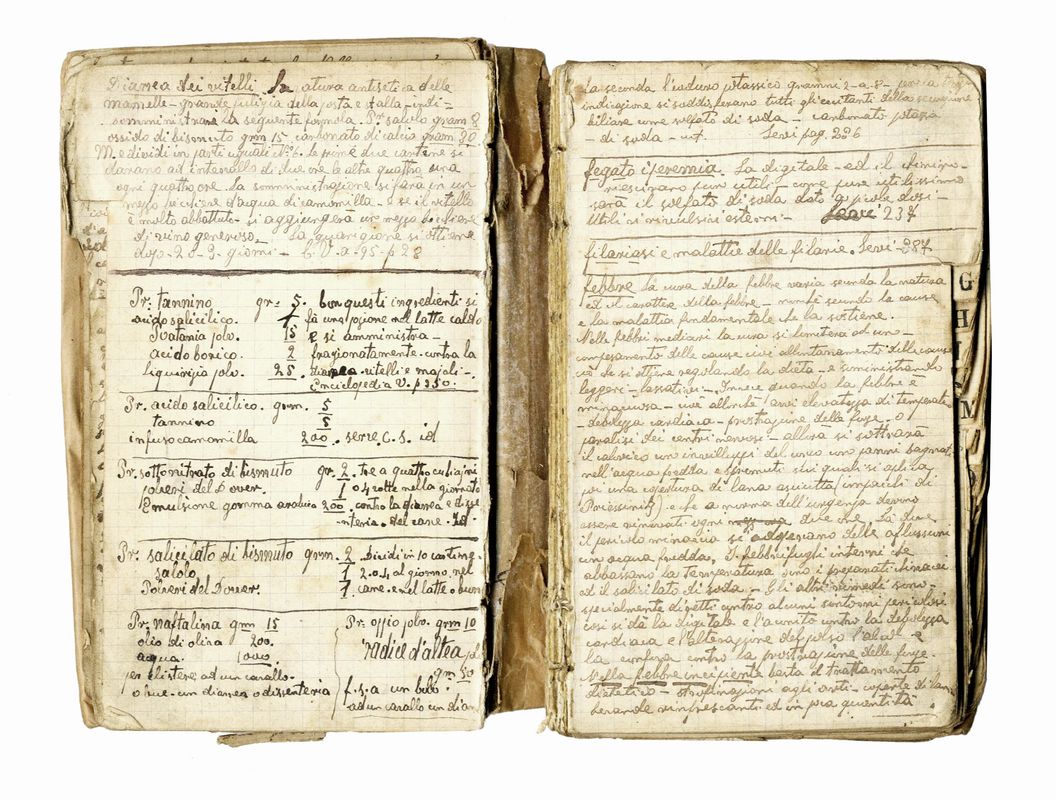 Diarea dei vitelli. La natura antisetica delle
mamelle - grande pulizia della posta e stalla - indi =
somministrare la seguente formola. Pr. salolo gram 8
ossido di bismuto grm 15 carbonato di calcio gram 20
M. e dividi in parti uguali N.º 6. Le prime due cartine si
darano ad intervallo di due ore le altre quattro una
ogni quattro ore. La somministrazione si farà in un
mezzo bicchiere d'acqua di camomilla. E se il vitello
è molto abbattuto - si aggiungerà un mezzo bicchiere
di vino generoso. La guarigione si ottiene
dopo - 2 o 3 - giorni - C. V. a - 95 - p 28
Pr. tannino gr. 5. Con questi ingredienti si
acido salicilico. 1 fà una pozione nel latte caldo
Ratania polv. 15 e si amministra -
acido borico. 2 frazionatamente contra la
liquirizia polv. 25. diarea - vitelli e majali -
Enciclopedia V. p 350.
Pr. acido salicilico. grm. 5
tannino 5
infuso camomilla 200. serve C. S. id
Pr. sottonitrato di bismuto gr. 2. tre a quattro cuchiajni
polveri del Dover. 1 o 4 volte nella giornata
Emulsione gomma arabica 200. contro la diarea e disse
nteria. del cane. Id.
Pr. salicilato di bismuto grm. 2 Dividi in 10 cartine
salolo 1 2. o 4 al giorno, nel
Polveri del Dower. 1. cane. e nel latte o bun
Pr. naftalina grm 15
olio di oliva 200.
acqua. 1000
per clistere ad un cavallo.
o bue - un diarea o dissenteria
Pr. oppio polv. grm 10
radice d'altea pol
grm 50
f. s. a un bolo.
ad un cavallo un dian
la seconda l'ioduro potassico grammi 2 - a - 8 -
indicazione si soddisferano tutti gli eccitanti della secrezione
biliare come solfato di soda - carbonato potassa
- di soda - ut. Levi pag. 226
fegato iperemia. La digitale - ed il chinino -
riescirano pur utili - come pure utilissimo
sarà il solfato di soda dato a picole dosi -
Utili i rivulsivi esterni - 237
filariasi e malattie delle filarie. Levi - 287
febbre La cura della febbre varia secondo la natura
ed il carattere della febbre - nonchè secondo la causa
e la malattia fondamentale che la sostiene.
Nelle febbri mediocri la cura si limiterà ad uno -
compensamento delle cause cioè allontanamento delle cause
ciò che si ottiene regolando la dieta - e somministrando
leggeri - lassativi - Invece quando la febbre è
minaciosa - cioè allorchè avvi elevatezza di temperata
- debolezza cardiaca - prostrazione delle forze - o
paralisi dei centri nervosi - allora si sottrarrà
il calorico con inviluppi del corpo con panni bagnati
nell'acqua fredda e spremuti sui quali si aplica
poi una copertura di lana asciutta (impachi di
Priessnitz) e che a norma dell'urgenza devono
essere rinnovati ogni due ore. Là dove
il pericolo minaccia si adoperano delle aflussioni
con acqua fredda. I febbrifughi interni che
abbassano la temperatura sono i preparati chinacei
ed il salicilato di soda - Gli altri rimedi sono -
specialmente diretti contro alcuni sintomi pericolosi
così si dà la digitale e l'aconito contro la debolezza
cardiaca e l'alterazione del polso l'alcool e
la canfora contro la prostrazione delle forze.
Nella febbre incipiente basta il trattamento
dietetico - strofinazioni agli arti - coperte di lana
bevande rinfrescanti ed in poca quantità
G
H
I
M